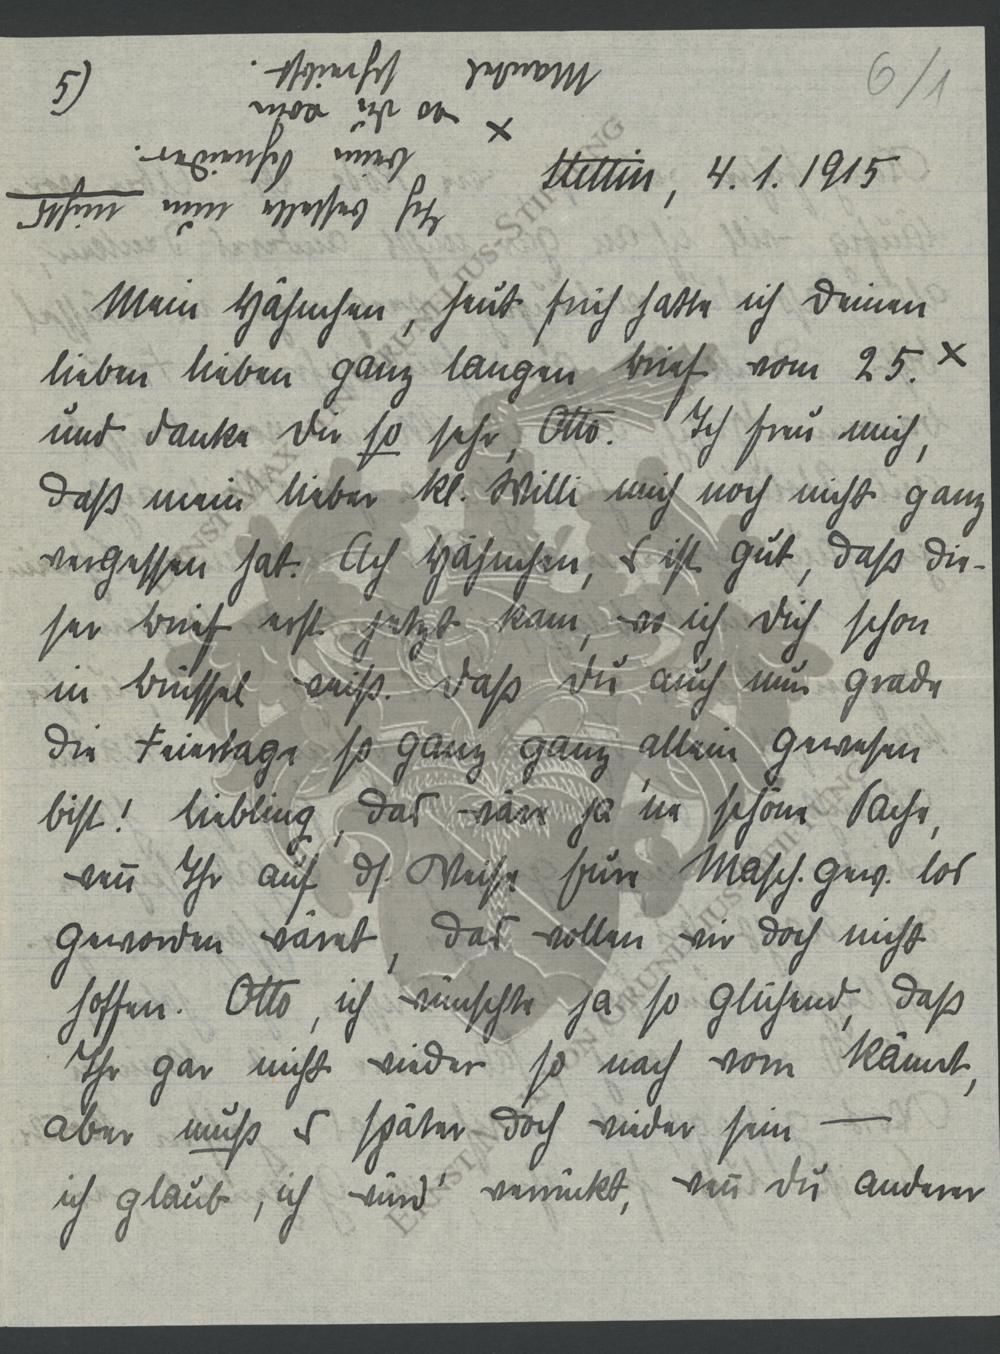 5)
6/1
× wo Du vom
Mantel schreibst.
Ich bestelle nun nichts
beim Schneider.
Stettin, 4. 1. 1915
Mein Hähnchen, heut früh hatte ich Deinen
lieben lieben ganz langen Brief vom 25. ×
und danke Dir so sehr, Otto. Ich freu mich,
daß mein lieber kl. Willi mich noch nicht ganz
vergessen hat. Ach Hähnchen, s ist gut, daß die-
ser Brief erst jetzt kam, wo ich Dich schon
in Brüssel weiß. Daß Du auch nun grade
die Feiertage so ganz ganz allein gewesen
bist! Liebling, das wäre ja 'ne schöne Sache,
wenn Ihr auf ds. Weise Eure Masch. gew. los
geworden wäret, das wollen wir doch nicht
hoffen. Otto, ich wünschte ja so glühend, daß
Ihr gar nicht wieder so nach vorn kämet,
aber muß s später doch wieder sein —
ich glaub, ich würd' verrückt, wenn Du anderer
ERNST MAX VON GRUNELIUS-STIFTUNG
ERNST MAX VON GRUNELIUS-STIFTUNG